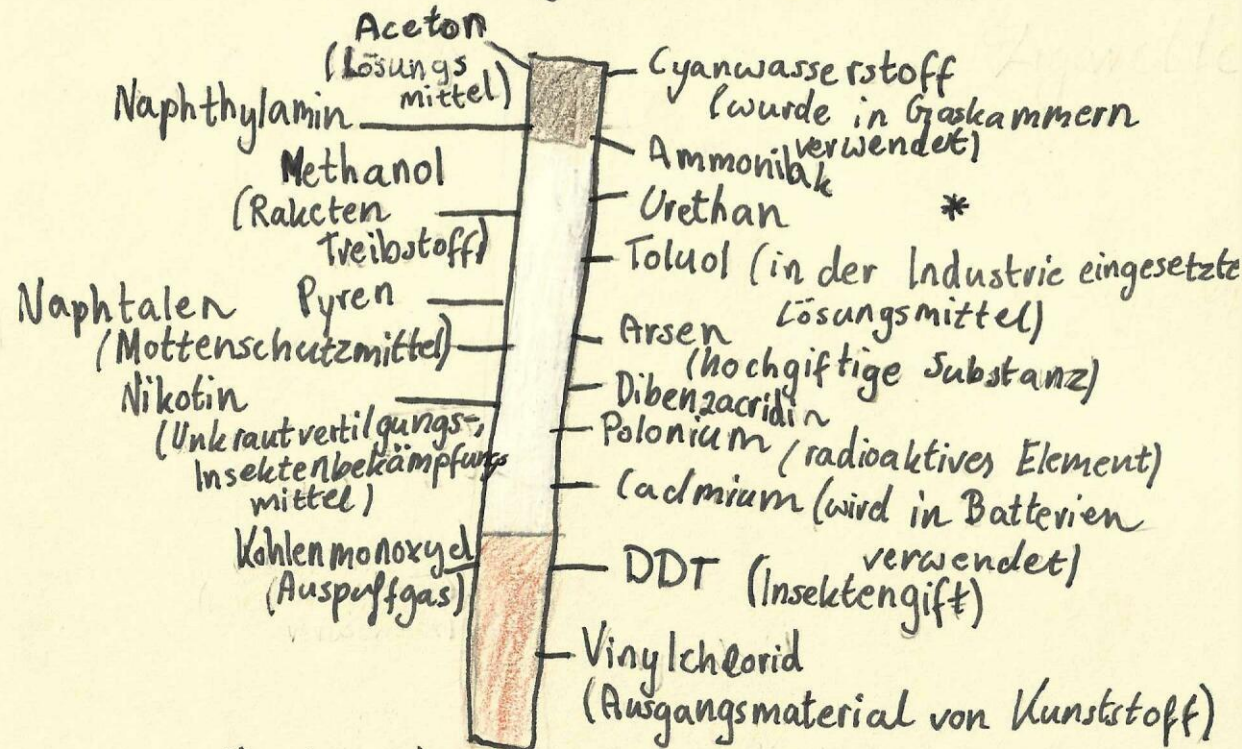 Aceton
(Lösungs
mittel)
Naphthylamin
Methanol
(Raketen
Treibstoff)
Pyren
Naphtalen
(Mottenschutzmittel)
Nikotin
(Unkrautvertilgungs-,
Insektenbekämpfungs
mittel)
Kohlenmonoxyd
(Auspuffgas)
Cyanwasserstoff
(wurde in Gaskammern
verwendet)
Ammoniak
Urethan
*
Toluol (in der Industrie eingesetzte
Lösungsmittel)
Arsen
(hochgiftige Substanz)
Dibenzacridin
Polonium (radioaktives Element)
Cadmium (wird in Batterien
verwendet)
DDT (Insektengift)
Vinylchlorid
(Ausgangsmaterial von Kunststoff)